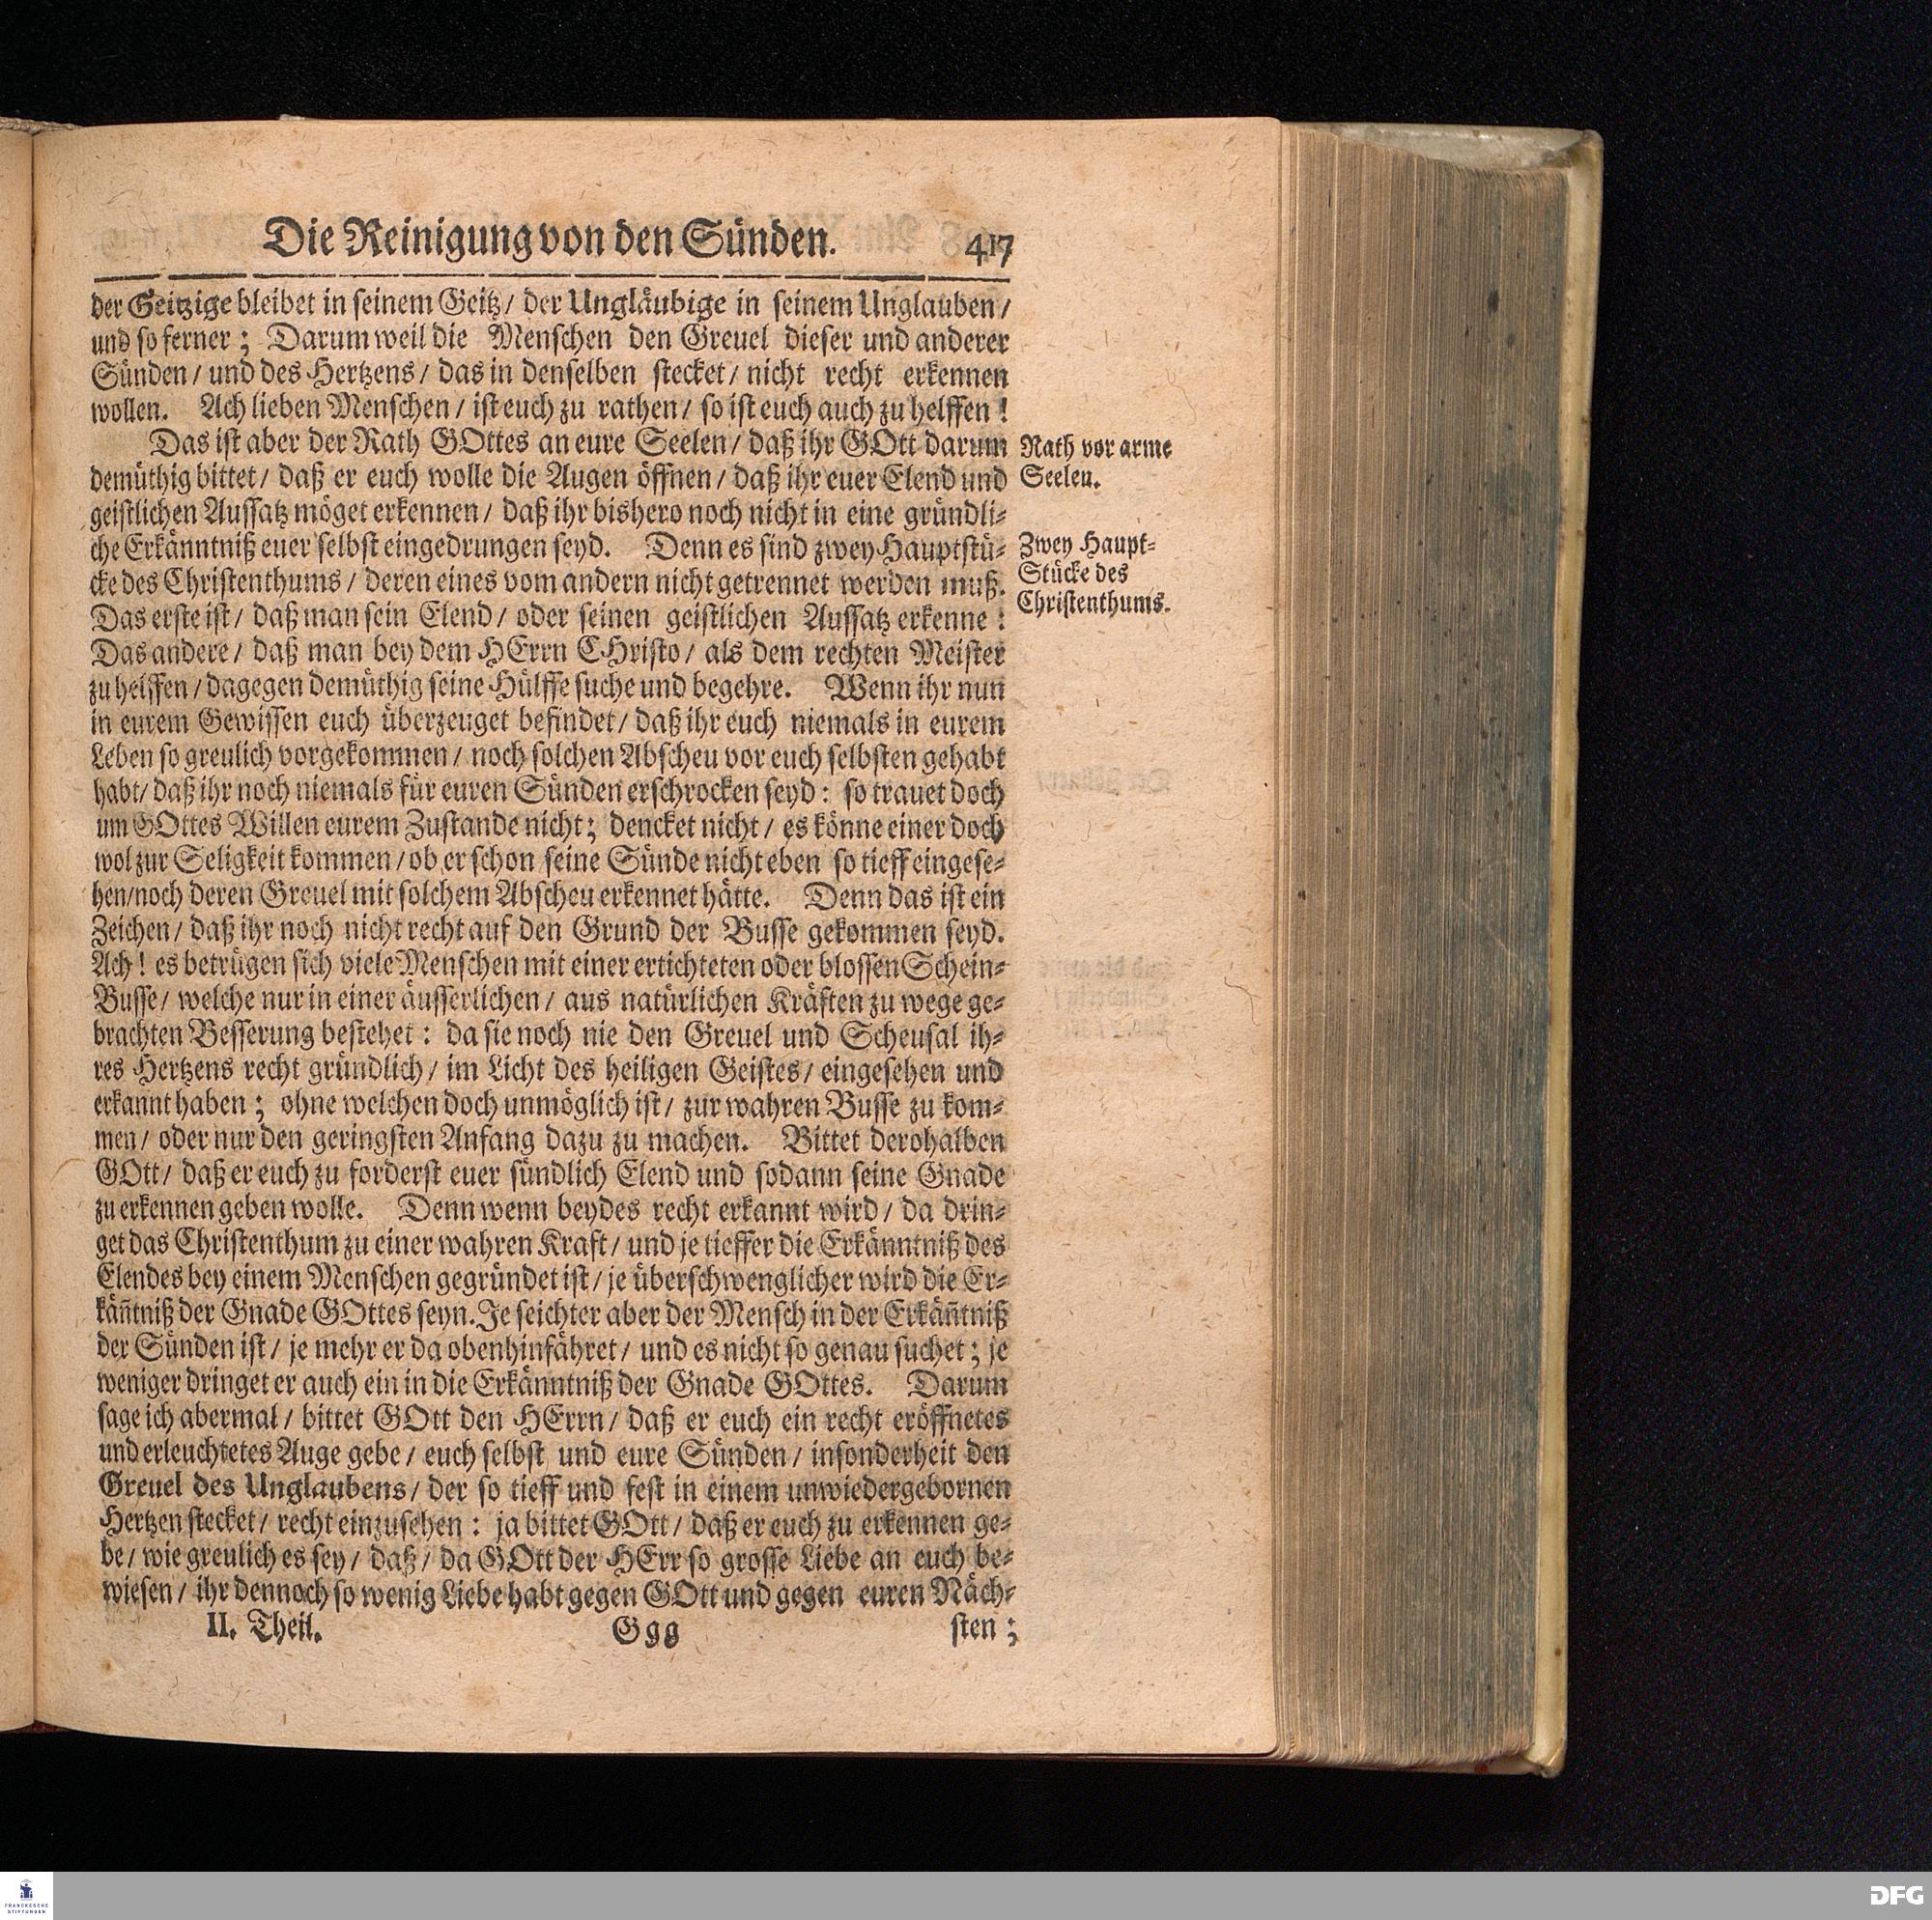 Die Reinigung von den Sünden. 417
der Geitzige bleibet in seinem Geitz / der Ungläubige in seinem Unglauben /
und so ferner ; Darum weil die Menschen den Greuel dieser und anderer
Sünden / und des Hertzens / das in denselben stecket / nicht recht erkennen
wollen. Ach lieben Menschen / ist euch zu rathen / so ist euch auch zu helffen !
Das ist aber der Rath GOttes an eure Seelen / daß ihr GOtt darum
demüthig bittet / daß er euch wolle die Augen öffnen / daß ihr euer Elend und
geistlichen Aussatz möget erkennen / daß ihr bishero noch nicht in eine gründli-
che Erkänntniß euer selbst eingedrungen seyd. Denn es sind zwey Hauptstü-
cke des Christenthums / deren eines vom andern nicht getrennet werden muß.
Das erste ist / daß man sein Elend / oder seinen geistlichen Aussatz erkenne :
Das andere / daß man bey dem HErrn CHristo / als dem rechten Meister
zu helffen / dagegen demüthig seine Hülffe suche und begehre. Wenn ihr nun
in eurem Gewissen euch überzeuget befindet / daß ihr euch niemals in eurem
Leben so greulich vorgekommen / noch solchen Abscheu vor euch selbsten gehabt
habt / daß ihr noch niemals für euren Sünden erschrocken seyd : so trauet doch
um GOttes Willen eurem Zustande nicht ; dencket nicht / es könne einer doch
wol zur Seligkeit kommen / ob er schon seine Sünde nicht eben so tieff eingese-
hen / noch deren Greuel mit solchem Abscheu erkennet hätte. Denn das ist ein
Zeichen / daß ihr noch nicht recht auf den Grund der Busse gekommen seyd.
Ach ! es betrügen sich viele Menschen mit einer ertichteten oder blossen Schein-
Busse / welche nur in einer äusserlichen / aus natürlichen Kräften zu wege ge-
brachten Besserung bestehet : da sie noch nie den Greuel und Scheusal ih-
res Hertzens recht gründlich / im Licht des heiligen Geistes / eingesehen und
erkannt haben ; ohne welchen doch unmöglich ist / zur wahren Busse zu kom-
men / oder nur den geringsten Anfang dazu zu machen. Bittet derohalben
GOtt / daß er euch zu forderst euer sündlich Elend und sodann seine Gnade
zu erkennen geben wolle. Denn wenn beydes recht erkannt wird / da drin-
get das Christenthum zu einer wahren Kraft / und je tieffer die Erkänntniß des
Elendes bey einem Menschen gegründet ist / je überschwenglicher wird die Er-
käñtniß der Gnade GOttes seyn. Je seichter aber der Mensch in der Erkäñtniß
der Sünden ist / je mehr er da obenhinfähret / und es nicht so genau suchet ; je
weniger dringet er auch ein in die Erkänntniß der Gnade GOttes. Darum
sage ich abermal / bittet GOtt den HErrn / daß er euch ein recht eröffnetes
und erleuchtetes Auge gebe / euch selbst und eure Sünden / insonderheit den
Greuel des Unglaubens / der so tieff und fest in einem unwiedergebornen
Hertzen stecket / recht einzusehen : ja bittet GOtt / daß er euch zu erkennen ge-
be / wie greulich es sey / daß / da GOtt der HErr so grosse Liebe an euch be-
wiesen / ihr dennoch so wenig Liebe habt gegen GOtt und gegen euren Näch-
II. Theil. Ggg sten ;
Rath vor arme
Seelen.
Zwey Haupt-
Stücke des
Christenthums.
FRANCKESCHE
STIFTUNGEN
DFG